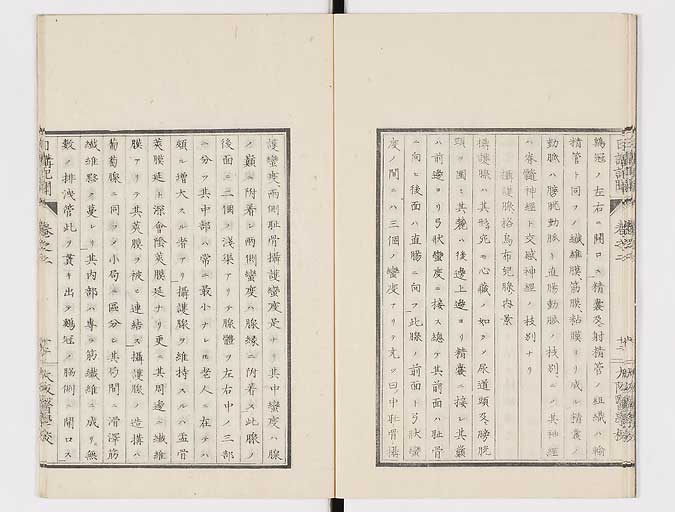 鶏冠ノ左右ニ開口ス精囊及射精管ノ組織ハ輸
精管ト同フノ纖維膜筋膜粘膜ヨリ成ル精囊ノ
動脈ハ膀胱動脈ト直腸動脈ノ枝別ニノ其神経
ハ脊髓神経ト交感神経ノ枝別ナリ
攝護腺格烏布兒腺内景
攝護腺ハ其形死心臓ノ如クノ尿道頸及膀胱
頸ヲ圍ミ其礎ハ後邊上邊ヨリ精囊ニ接シ其巓
ハ前邊ヨリ弓状彎度ニ接ス總テ其前面ハ耻骨
ニ向ヒ後面ハ直腸ニ向フ此腺ノ前面ト弓状彎
度ノ間ニハ三個ノ彎度アリテ之ヲ曰フ中耻骨攝
護彎度兩側耻骨攝護彎度是ナリ其中彎度ハ腺
ノ巓ニ附着シ兩側彎度ハ腺縁ニ附着ス此腺ノ
後面ニ二個ノ淺渠アリテ腺體ヲ左右中ノ三部
ニ分ツ其中部ハ常ニ最小ナレ𪜈老人ニ在テハ
頗ル增大スル者アリ攝護腺ヲ維持スルハ盂骨
莢膜延ト深會陰莢膜延ナリ更ニ其周邊ニ纖維
膜アリテ其莢膜ヲ被ヒ連結ス攝護腺ノ造構ハ
葡萄腺ニ同フノ小局ニ區分シ其局間ニ滑澤筋
纖維夥ク蔓レリ其内部ハ專ラ筋纖維ニ成リ無
數ノ排洩管此ヲ貫キ出テ鶏冠ノ腸側ニ開口ス
日講記聞 卷之二 大阪醫學校